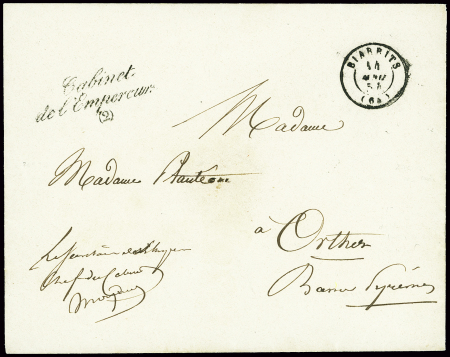 Cabinet
de l'Empereur.
(2)
BIARRITS
14
AOU
54
(64)
Madame
Madame
à Orthez
Basses Pyrénées
Le Secrétaire de l'Empereur
Chef du Cabinet